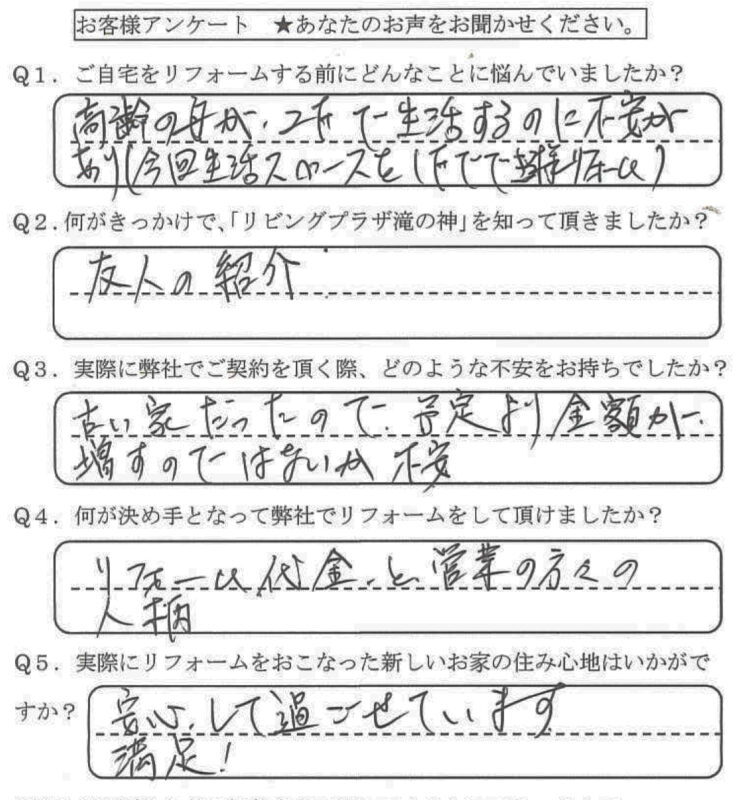 お客様アンケート ★あなたのお声をお聞かせください。
Q1．ご自宅をリフォームする前にどんなことに悩んでいましたか？
高齢の母が、2Fで生活するのに不安が
あり(今回生活スペースを1Fでリフォーム)
Q2．何がきっかけで、「リビングプラザ滝の神」を知って頂きましたか？
友人の紹介
Q3．実際に弊社でご契約を頂く際、どのような不安をお持ちでしたか？
古い家だったので、予定より金額が
増すのではないか不安
Q4．何が決め手となって弊社でリフォームをして頂けましたか？
リフォーム代金、と営業の方々の
人柄
Q5．実際にリフォームをおこなった新しいお家の住み心地はいかがで
すか？
安心して過ごせています
満足！